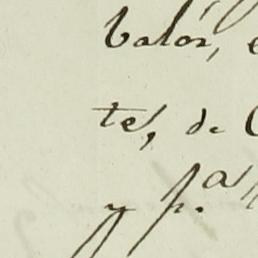 Valór,
tes, de
y p.ª